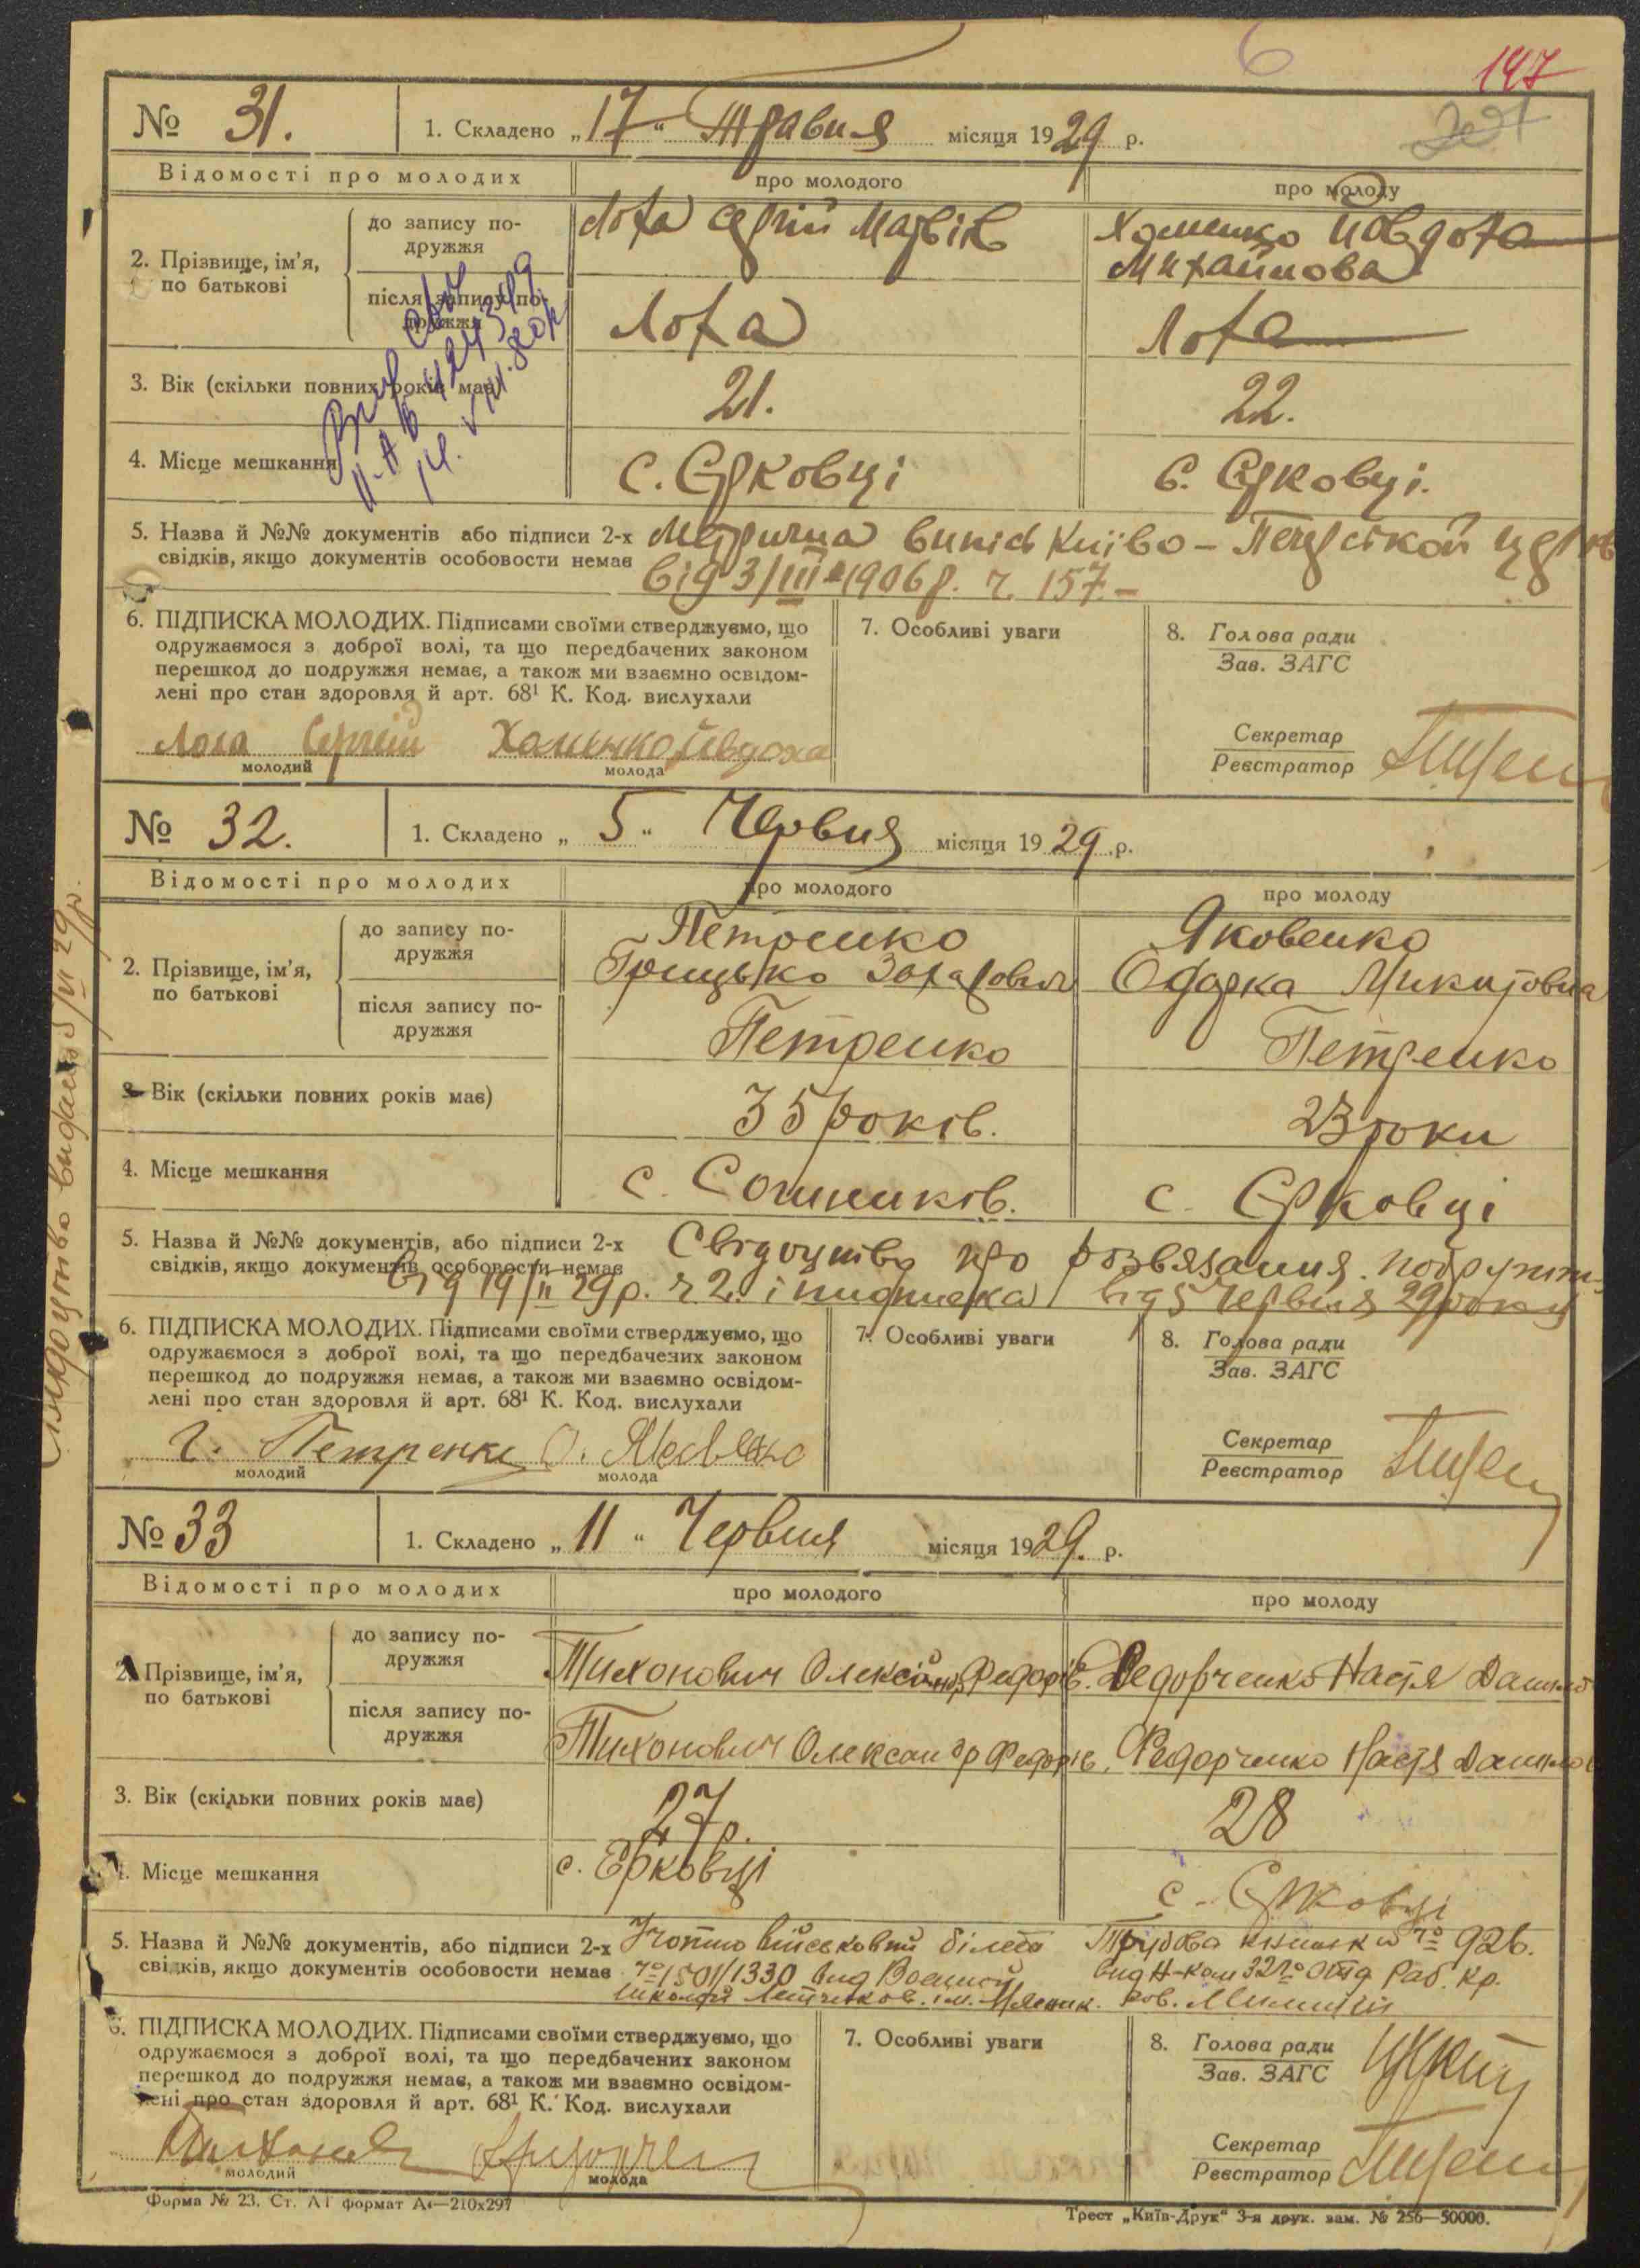 6 147
№ 31. 1. Складено „17“ Травня місяця 1929 р.
Відомості про молодих про молодого про молоду
2. Прізвище, ім'я, по батькові
до запису подружжя Лоха Сергій Матвієв Хоменко Йовдоха Михайлова
після запису подружжя Лоха Лоха
3. Вік (скільки повних років має) 21. 22.
4. Місце мешкання с. Єрковці с. Єрковці.
5. Назва й №№ документів або підписи 2-х Метрична випісь Київо-Печерской церков
свідків, якщо документів особовости немає від 3/III 1906 р. ч. 157.–
6. ПІДПИСКА МОЛОДИХ. Підписами своїми стверджуємо, що
одружаємося з доброї волі, та що передбачених законом
перешкод до подружжя немає, а також ми взаємно освідом-
лені про стан здоровля й арт. 68¹ К. Код. вислухали
7. Особливі уваги
8. Голова ради
Зав. ЗАГС
Секретар
Реєстратор
Лоха Сергій Хоменко Йевдоха
молодий молода
№ 32. 1. Складено „5“ Червня місяця 1929 р.
Відомості про молодих про молодого про молоду
2. Прізвище, ім'я, по батькові
до запису подружжя Петренко Грицько Захарович Яковенко Одарка Микитовна
після запису подружжя Петренко Петренко
3. Вік (скільки повних років має) 35 років. 23 роки
4. Місце мешкання с. Сошников. с. Єрковці
5. Назва й №№ документів, або підписи 2-х Свідоцтво про розвязання подружж-
свідків, якщо документів особовости немає від 19/II 29 р. ч 2. і підписка від 5 Червня 29 року
6. ПІДПИСКА МОЛОДИХ. Підписами своїми стверджуємо, що
одружаємося з доброї волі, та що передбачених законом
перешкод до подружжя немає, а також ми взаємно освідом-
лені про стан здоровля й арт. 68¹ К. Код. вислухали
7. Особливі уваги
8. Голова ради
Зав. ЗАГС
Секретар
Реєстратор
Г. Петренко О. Яковенко
молодий молода
№ 33 1. Складено „11“ Червня місяця 1929. р.
Відомості про молодих про молодого про молоду
2. Прізвище, ім'я, по батькові
до запису подружжя Тихонович Олександр Федорів. Федорченко Настя Данилов
після запису подружжя Тихонович Олександр Федорів, Федорченко Настя Данилов
3. Вік (скільки повних років має) 27 р. 28
4. Місце мешкання с. Єрковці с. Єрковці
5. Назва й №№ документів, або підписи 2-х військовий білет Трудова книжка № 926.
свідків, якщо документів особовости немає № 1501/1330 вид Военной Раб. Кр.
школой
6. ПІДПИСКА МОЛОДИХ. Підписами своїми стверджуємо, що
одружаємося з доброї волі, та що передбачених законом
перешкод до подружжя немає, а також ми взаємно освідом-
лені про стан здоровля й арт. 68¹ К. Код. вислухали
7. Особливі уваги
8. Голова ради
Зав. ЗАГС
Секретар
Реєстратор
молодий молода
Форма № 23. Ст. АІ формат А4—210х297
Трест „Київ-Друк“ 3-я друк. зам. № 256—50000.
Свідоцтво видано 5/VI 29 р.